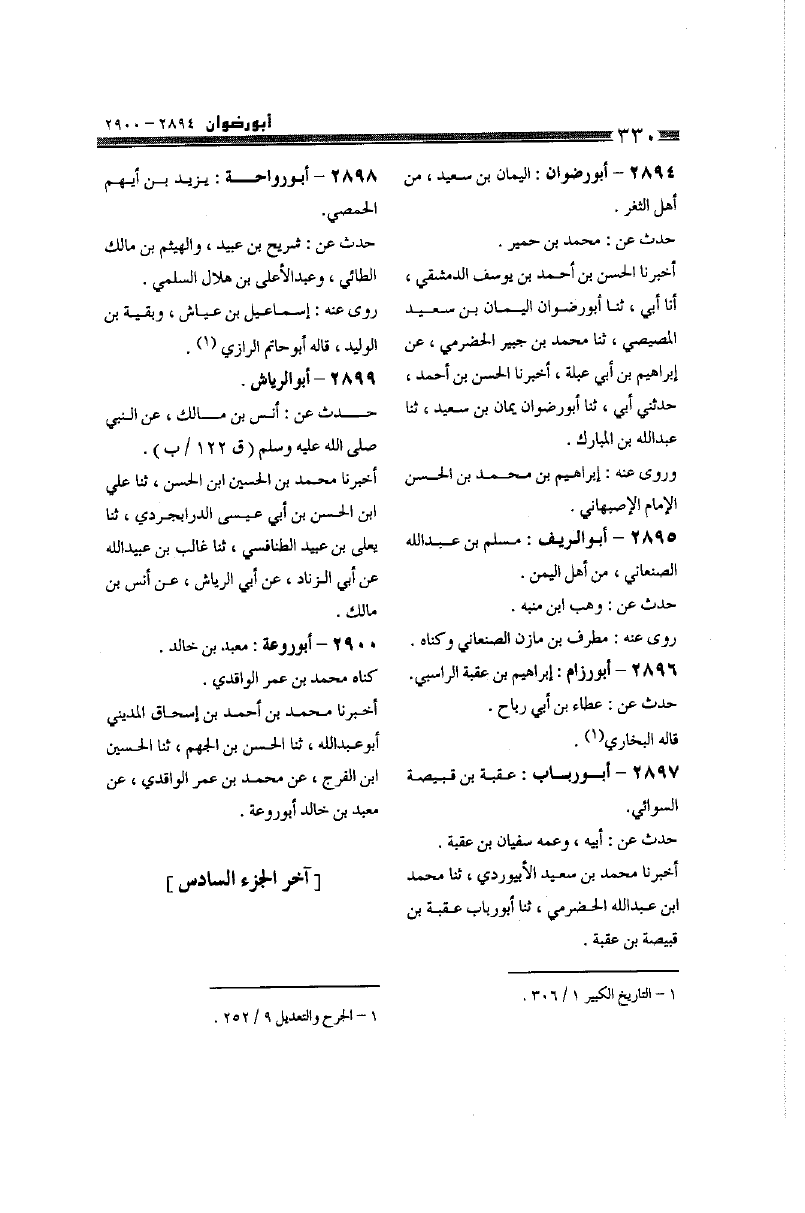 ٣٣٠
أبورضوان ٢٨٩٤ - ٢٩٠٠
٢٨٩٤ - أبورضوان : اليمان بن سعيد ، من
أهل الثغر .
حدث عن : محمد بن حمير .
أخبرنا الحسن بن أحمد بن يوسف الدمشقي ،
أنا أبي ، ثنا أبورضوان اليمان بن سعيد
المصيصي ، ثنا محمد بن جبير الحضرمي ، عن
إبراهيم بن أبي عبلة ، أخبرنا الحسن بن أحمد ،
حدثني أبي ، ثنا أبورضوان يمان بن سعيد ، ثنا
عبدالله بن المبارك .
وروى عنه : إبراهيم بن محمد بن الحسن
الإمام الإصبهاني .
٢٨٩٥ - أبوالريف : مسلم بن عبدالله
الصنعاني ، من أهل اليمن .
حدث عن : وهب ابن منبه .
روى عنه : مطرف بن مازن الصنعاني وكناه .
٢٨٩٦ - أبورزام : إبراهيم بن عقبة الراسبي.
حدث عن : عطاء بن أبي رباح .
قاله البخاري(١) .
٢٨٩٧ - أبورساب : عقبة بن قبيصة
السوائي.
حدث عن : أبيه ، وعمه سفيان بن عقبة .
أخبرنا محمد بن سعيد الأبيوردي ، ثنا محمد
ابن عبدالله الحضرمي ، ثنا أبورباب عقبة بن
قبيصة بن عقبة .
١ - التاريخ الكبير ١ / ٣٠٦ .
٢٨٩٨ - أبورواحة : يزيد بن أيهم
الحمصي.
حدث عن : شريح بن عبيد ، والهيثم بن مالك
الطائي ، وعبدالأعلى بن هلال السلمي .
روى عنه : إسماعيل بن عياش ، وبقية بن
الوليد ، قاله أبوحاتم الرازي (١) .
٢٨٩٩ - أبوالرياش .
حدث عن : أنس بن مالك ، عن النبي
صلى الله عليه وسلم ( ق ١٢٢ / ب ) .
أخبرنا محمد بن الحسين ابن الحسن ، ثنا علي
ابن الحسن بن أبي عيسى الدرابجردي ، ثنا
يعلى بن عبيد الطنافسي ، ثنا غالب بن عبيدالله
عن أبي الزناد ، عن أبي الرياش ، عن أنس بن
مالك .
٢٩٠٠ - أبوروعة : معبد بن خالد .
كناه محمد بن عمر الواقدي .
أخبرنا محمد بن أحمد بن إسحاق المديني
أبوعبدالله ، ثنا الحسن بن الجهم ، ثنا الحسين
ابن الفرج ، عن محمد بن عمر الواقدي ، عن
معبد بن خالد أبوروعة .
[ آخر الجزء السادس ]
١ - الجرح والتعديل ٩ / ٢٥٢ .